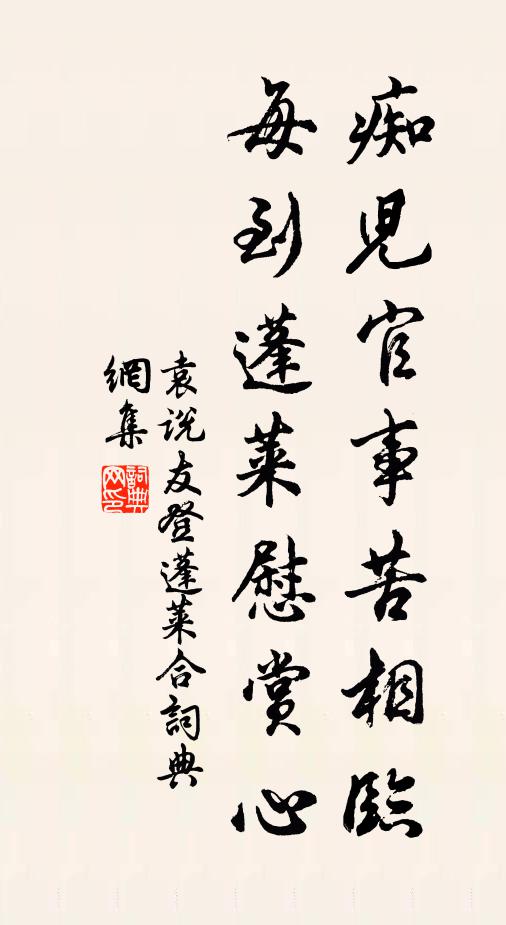 痴児官事苦相臨
每到蓬莱慰賞心
袁说友登蓬莱合詞典
網集
詞典網印